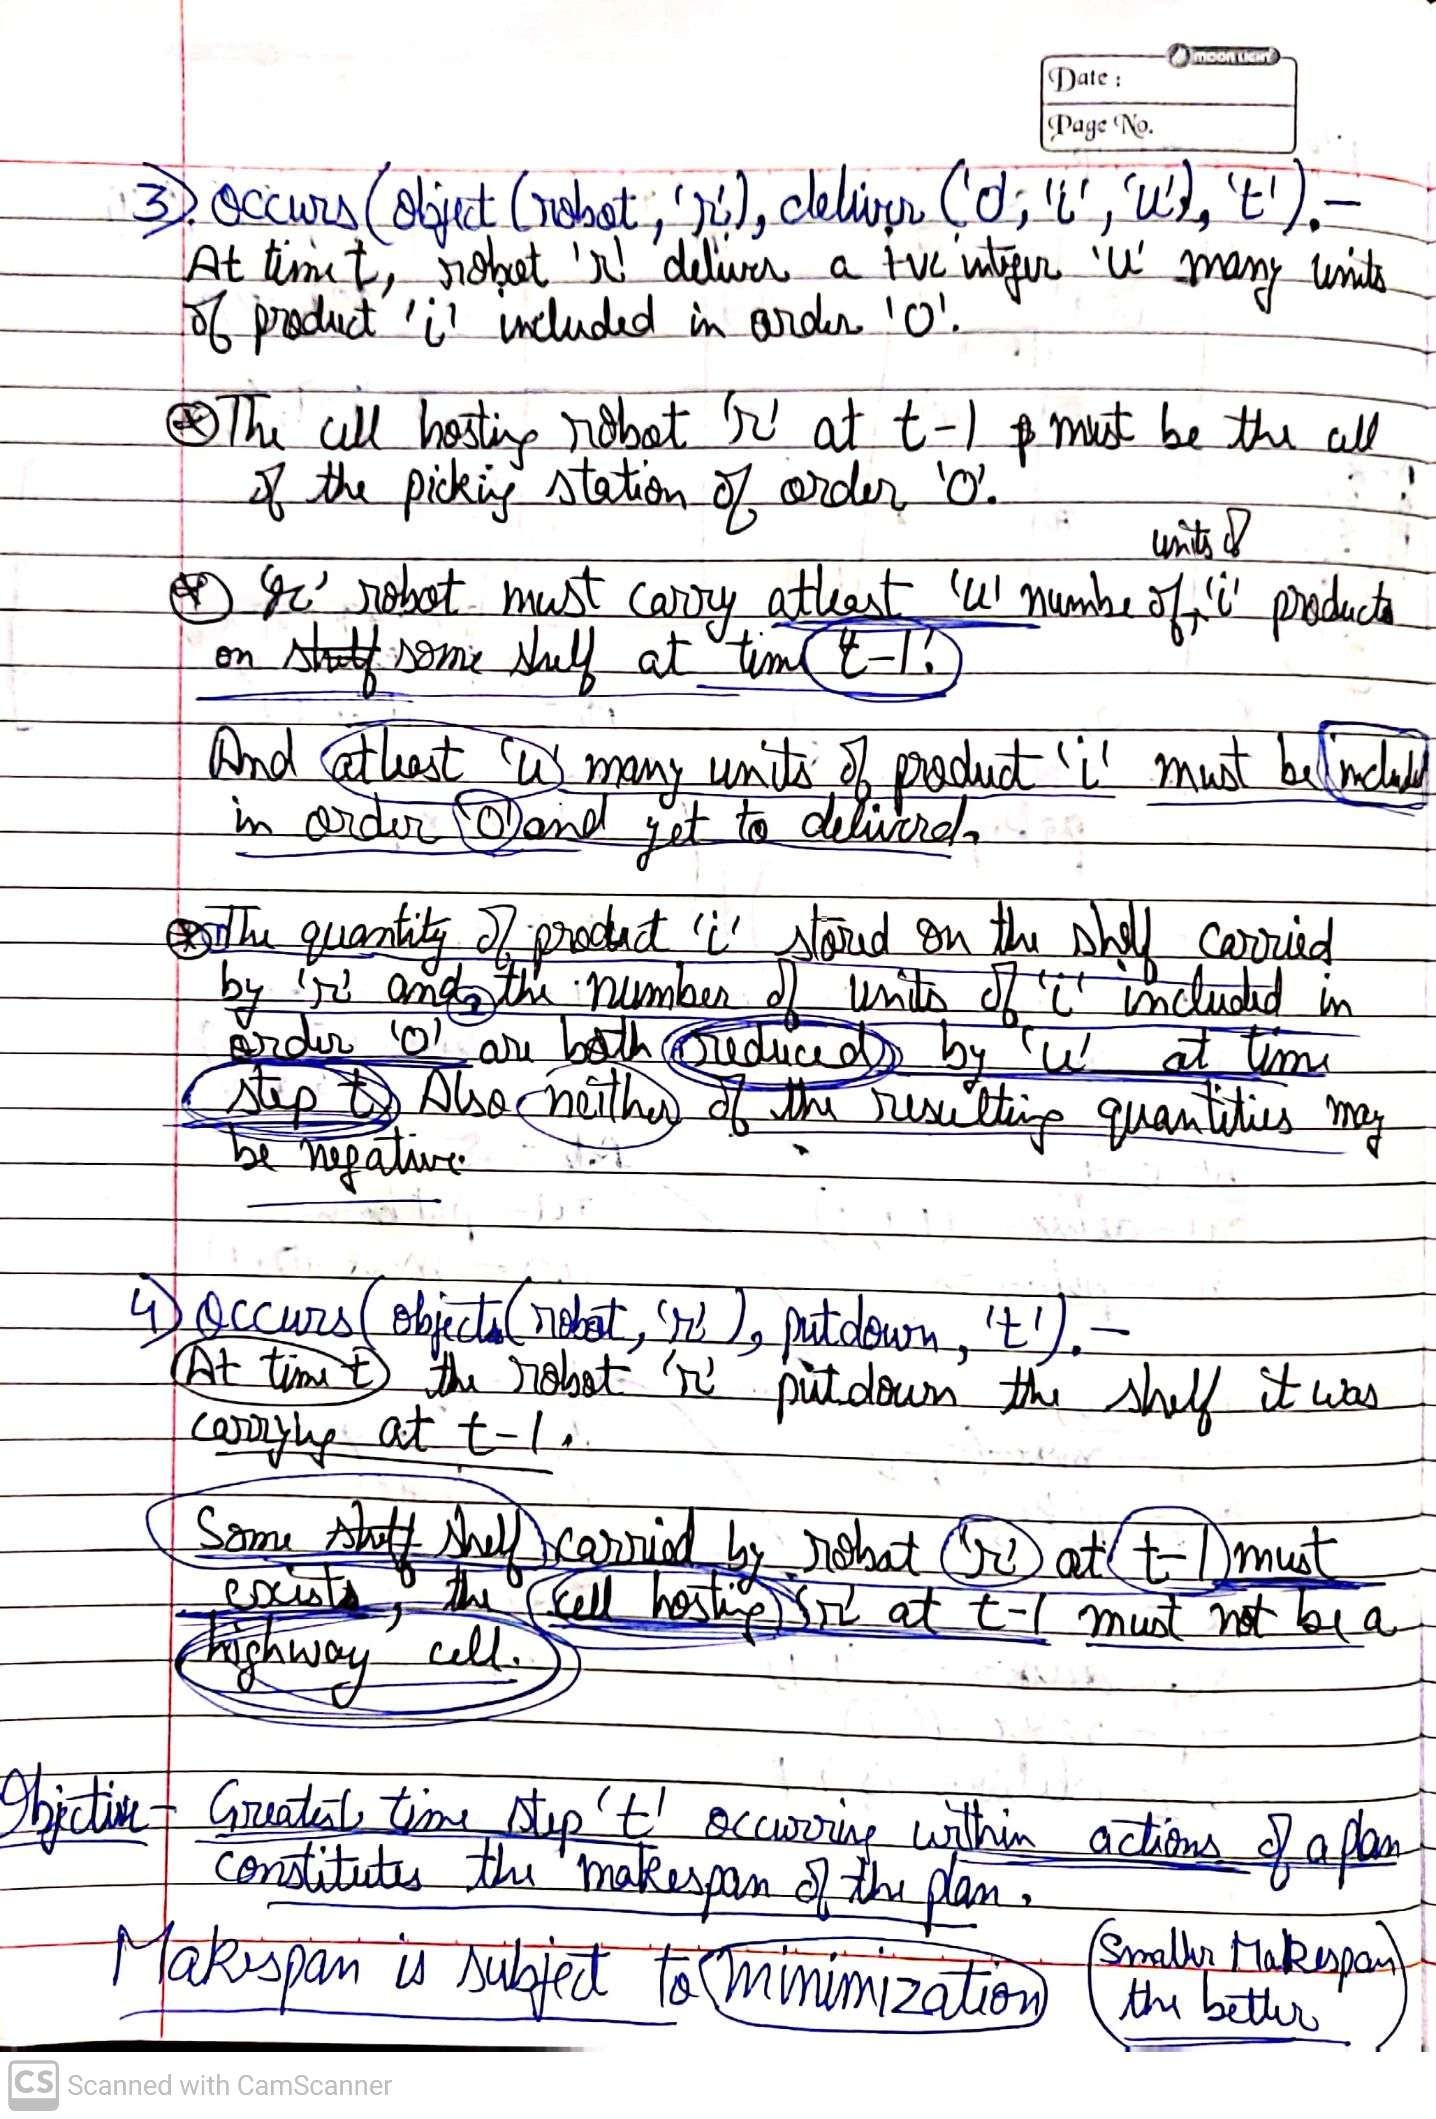 moonlight
Date :
Page No.
3) Occurs (object (robot, 'r'), deliver ('o', 'i', 'u'), 't'). –
At time t, robot 'r' deliver a +ve integer 'u' many units
of product 'i' included in order 'O'.
⊛ The cell hosting robot 'r' at t-1 must be the cell
of the picking station of order 'O'.
units of
⊛ 'r' robot must carry atleast 'u' numbe of 'i' products
on some shelf at time t-1.
And atleast 'u' many units of product 'i' must be included
in order 'O' and yet to delivered.
⊛ The quantity of product 'i' stored on the shelf carried
by 'r' and ② the number of units of 'i' included in
order 'O' are both reduced by 'u' at time
step t. Also neither of the resulting quantities may
be negative.
4) Occurs (object (robot, 'r'), putdown, 't'). –
At time t the robot 'r' putdown the shelf it was
carrying at t-1.
Some shelf carried by robot 'r' at t-1 must
exists, the cell hosting 'r' at t-1 must not be a
highway cell.
Objective – Greatest time step 't' occurring within actions of a plan
constitutes the makespan of the plan.
Makespan is subject to minimization
(Smaller Makespan
the better)
CS Scanned with CamScanner